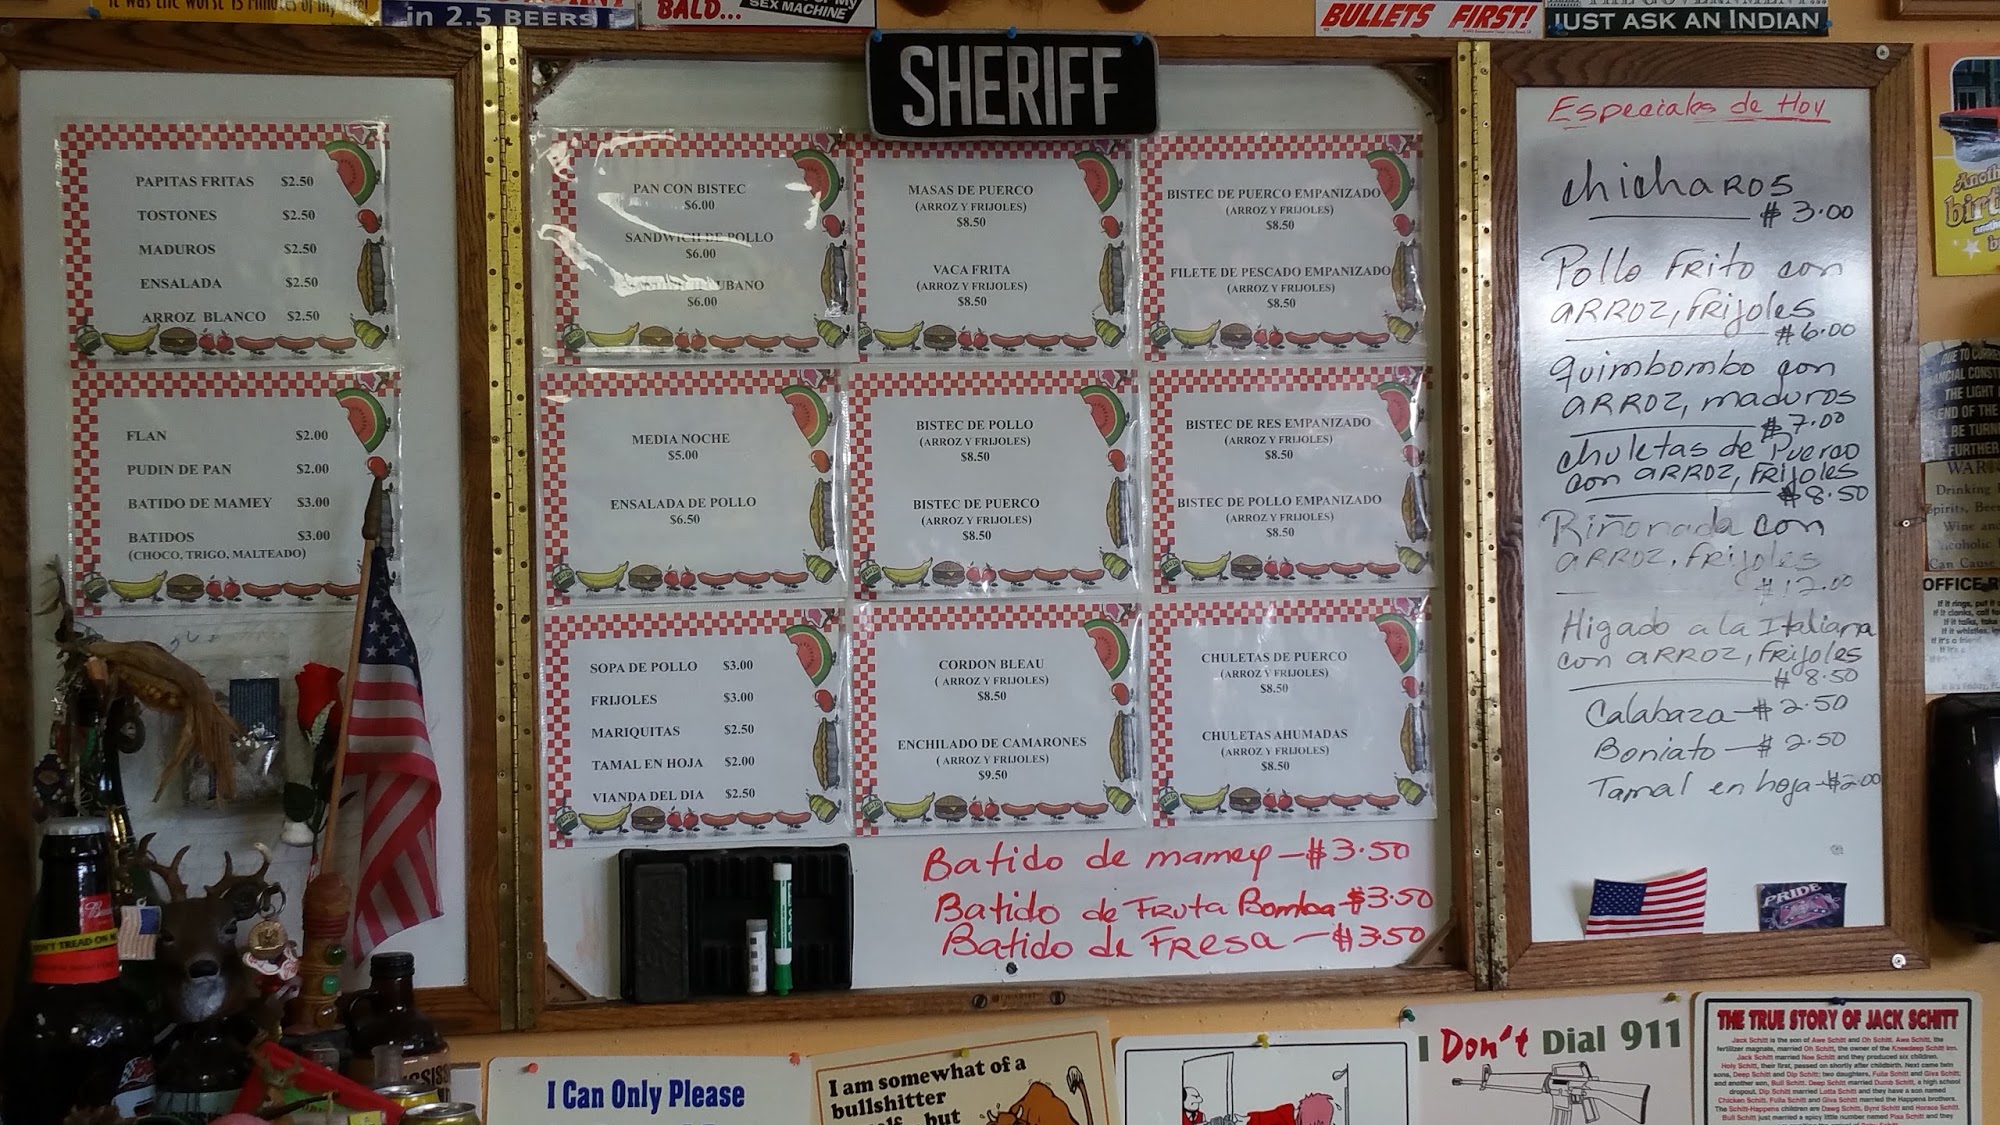 it was the worst 15 minutes of my life!
in 2.5 BEERS
BALD...
SEX MACHINE
BULLETS FIRST!
JUST ASK AN INDIAN
SHERIFF
PAPITAS FRITAS $2.50
TOSTONES $2.50
MADUROS $2.50
ENSALADA $2.50
ARROZ BLANCO $2.50
FLAN $2.00
PUDIN DE PAN $2.00
BATIDO DE MAMEY $3.00
BATIDOS $3.00
(CHOCO, TRIGO, MALTEADO)
PAN CON BISTEC
$6.00
SANDWICH DE POLLO
$6.00
CUBANO
$6.00
MEDIA NOCHE
$5.00
ENSALADA DE POLLO
$6.50
SOPA DE POLLO $3.00
FRIJOLES $3.00
MARIQUITAS $2.50
TAMAL EN HOJA $2.00
VIANDA DEL DIA $2.50
MASAS DE PUERCO
(ARROZ Y FRIJOLES)
$8.50
VACA FRITA
(ARROZ Y FRIJOLES)
$8.50
BISTEC DE POLLO
(ARROZ Y FRIJOLES)
$8.50
BISTEC DE PUERCO
(ARROZ Y FRIJOLES)
$8.50
CORDON BLEAU
( ARROZ Y FRIJOLES)
$8.50
ENCHILADO DE CAMARONES
( ARROZ Y FRIJOLES)
$9.50
BISTEC DE PUERCO EMPANIZADO
(ARROZ Y FRIJOLES)
$8.50
FILETE DE PESCADO EMPANIZADO
(ARROZ Y FRIJOLES)
$8.50
BISTEC DE RES EMPANIZADO
(ARROZ Y FRIJOLES)
$8.50
BISTEC DE POLLO EMPANIZADO
(ARROZ Y FRIJOLES)
$8.50
CHULETAS DE PUERCO
(ARROZ Y FRIJOLES)
$8.50
CHULETAS AHUMADAS
(ARROZ Y FRIJOLES)
$8.50
Batido de mamey - $3.50
Batido de Fruta Bomba - $3.50
Batido de Fresa - $3.50
Especiales de Hoy
chicharos
$3.00
Pollo Frito con
arroz, frijoles
$6.00
quimbombo con
arroz, maduros
$7.00
chuletas de Puerco
con arroz, frijoles
$8.50
Riñonada con
arroz, frijoles
$12.00
Higado a la Italiana
con arroz, frijoles
$8.50
Calabaza - $2.50
Boniato - $2.50
Tamal en hoja - $2.00
PRIDE
OFFICE
WAR
Drinking
Wine and
Can Cause
THE LIGHT
BE TURN
FURTHER
I Can Only Please
I am somewhat of a
bullshitter
but
I Don't Dial 911
THE TRUE STORY OF JACK SCHITT
Jack Schitt is the son of Awe Schitt and Oh Schitt. Awe Schitt, the
fertilizer magnate, married Oh Schitt, the owner of the Kneedeep Schitt Inn.
Jack Schitt married Noe Schitt and they produced six children.